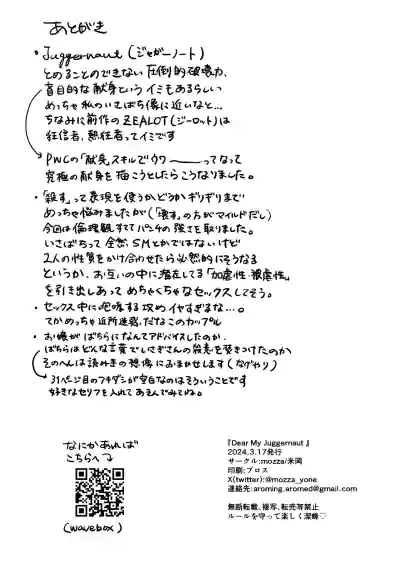 あとがき
・Juggernaut (ジャガーノート)
とめることのできない圧倒的破壊力、
盲目的な献身というイミもあるらしい
めっちゃ私のいさばち像に近いなと…
ちなみに前作のZEALOT(ジーロット)は
狂信者、熱狂者ってイミです
PWCの「献身」スキルでウワーーーってなって
究極の献身を描こうとしたらこうなりました。
・「殺す」って表現を使うかどうかギリギリまで
めっちゃ悩みましたが(「壊す」の方がマイルドだし)
今回は倫理観すててパンチの強さを取りました。
いさばちって全然SMとかではないけど
2人の性質をかけ合わせたら必然的にそうなる
というか、お互いの中に潜在してる「加虐性・被虐性」
を引き出しあってめちゃくちゃなセックスしてそう。
・セックス中に咆哮する攻めイヤすぎるな…。
てかめっちゃ近所迷惑だなこのカップル
・お嬢がばちらになんてアドバイスしたのか、
ばちらはどんな言葉でいさぎさんの殺意を焚きつけたのか
そのへんは読み手の想像におまかせします(なげやり)
31ページ目のフキダシが空白なのはそういうことです
好きなセリフを入れてあそんでみてね。
なにかあれば
こちらへ
(wavebox)
『Dear My Juggernaut 』
2024.3.17発行
サークル:mozza/米岡
印刷:プロス
X(twitter):@mozza_yone
連絡先:aroming.aromed@gmail.com
無断転載、複写、転売等禁止
ルールを守って楽しく潔蜂♡